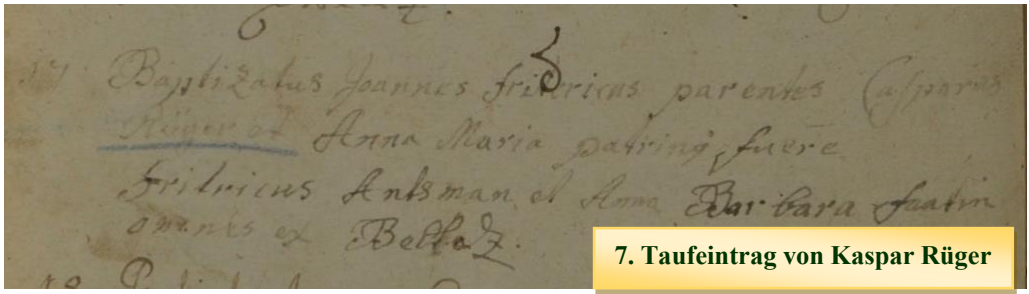 17 Baptizatus Joannes fridericus parentes Casparus
Rüger et Anna Maria patrinÿ fuere
fridricus Antsman et Anna Barbara
omnes ex
7. Taufeintrag von Kaspar Rüger